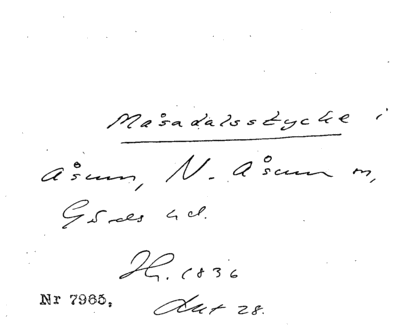 Måsadalsstycke i
Åsum, N. Åsum sn,
Gärds hd.
Hs. 1836
Akt 28.
Nr 7965,